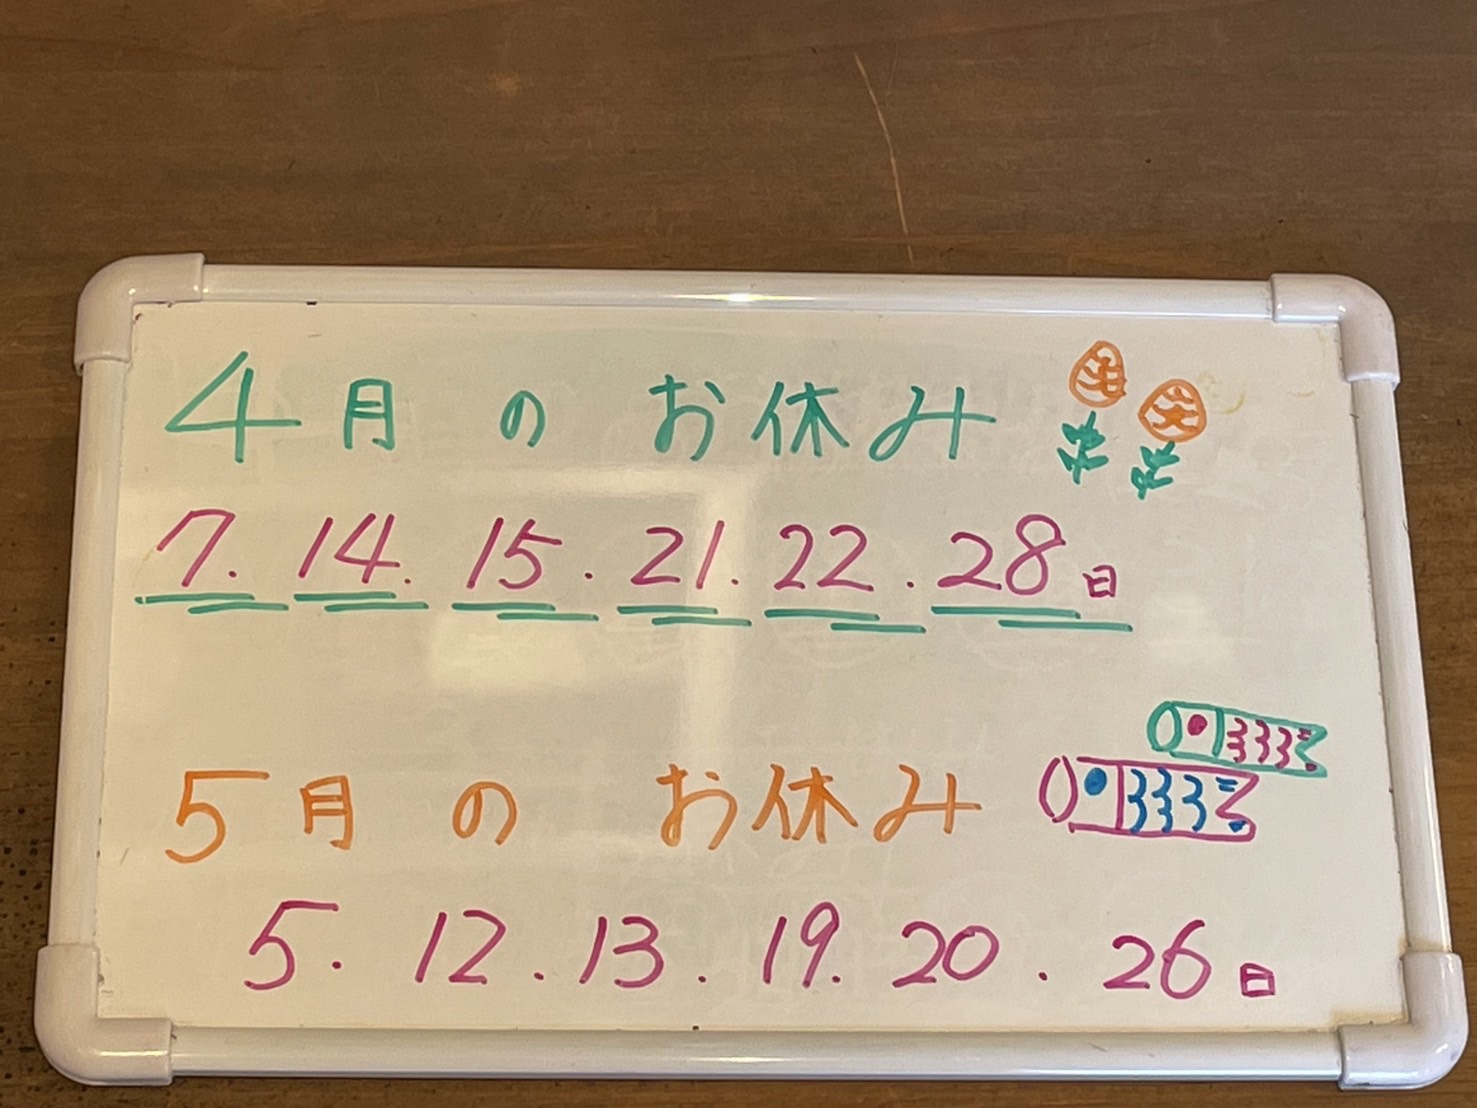 4月のお休み
7. 14. 15. 21. 22. 28日
5月のお休み
5. 12. 13. 19. 20. 26日